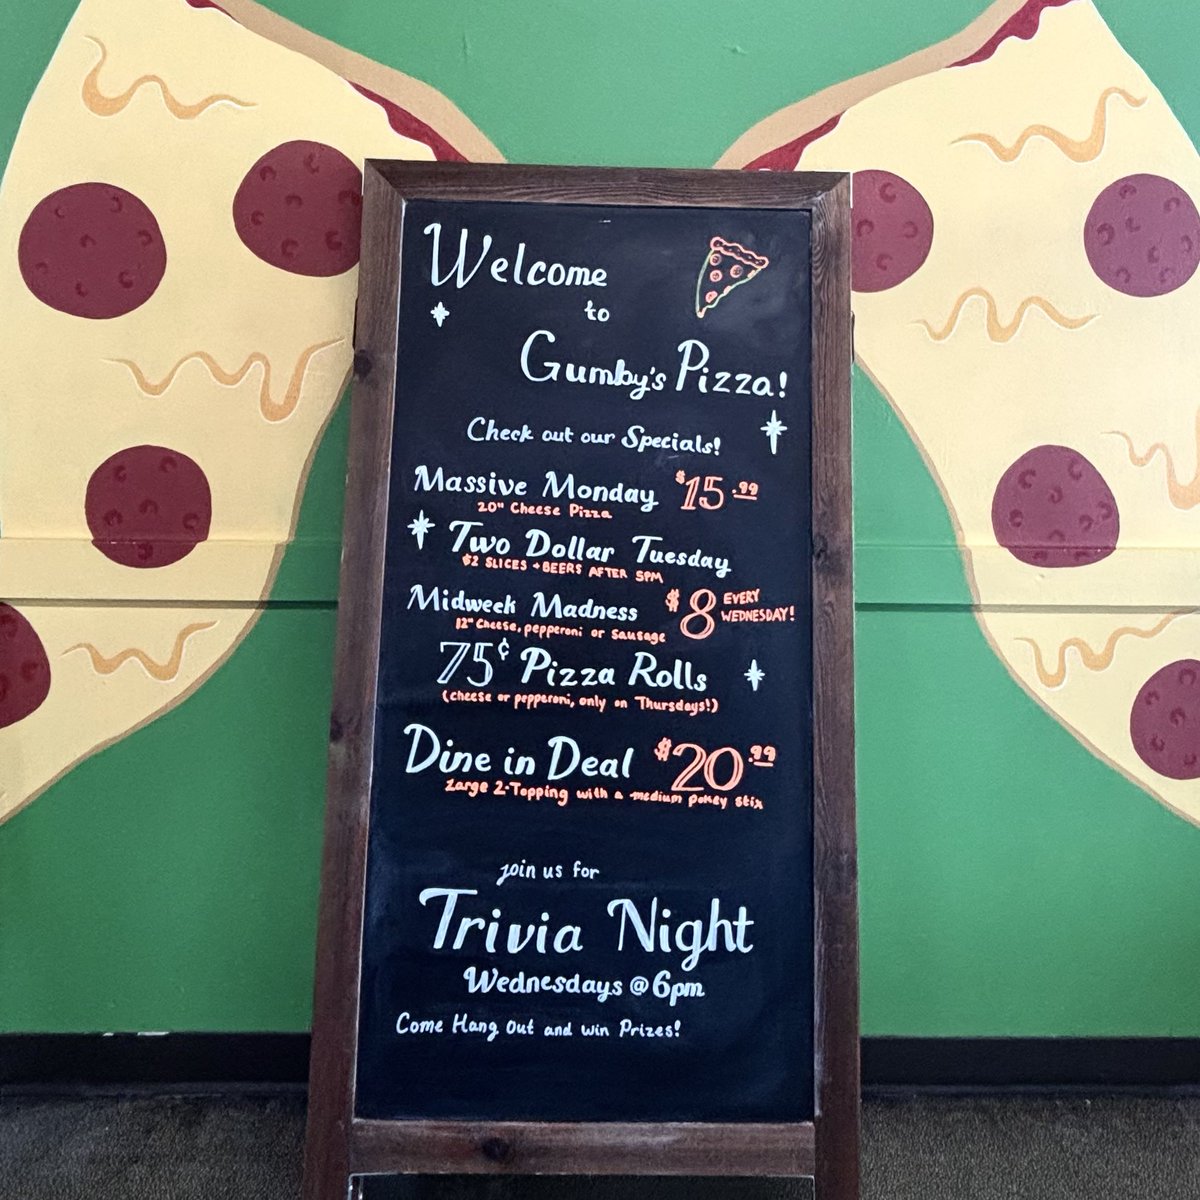 Welcome
to
Gumby's Pizza!
Check out our Specials!
Massive Monday $15.99
20" Cheese Pizza
Two Dollar Tuesday
$2 SLICES + BEERS AFTER 5PM
Midweek Madness $8 EVERY WEDNESDAY!
12" Cheese, pepperoni or sausage
75¢ Pizza Rolls
(cheese or pepperoni, only on Thursdays!)
Dine in Deal $20.99
Large 2-Topping with a medium pokey stix
join us for
Trivia Night
Wednesdays @ 6pm
Come Hang Out and win Prizes!